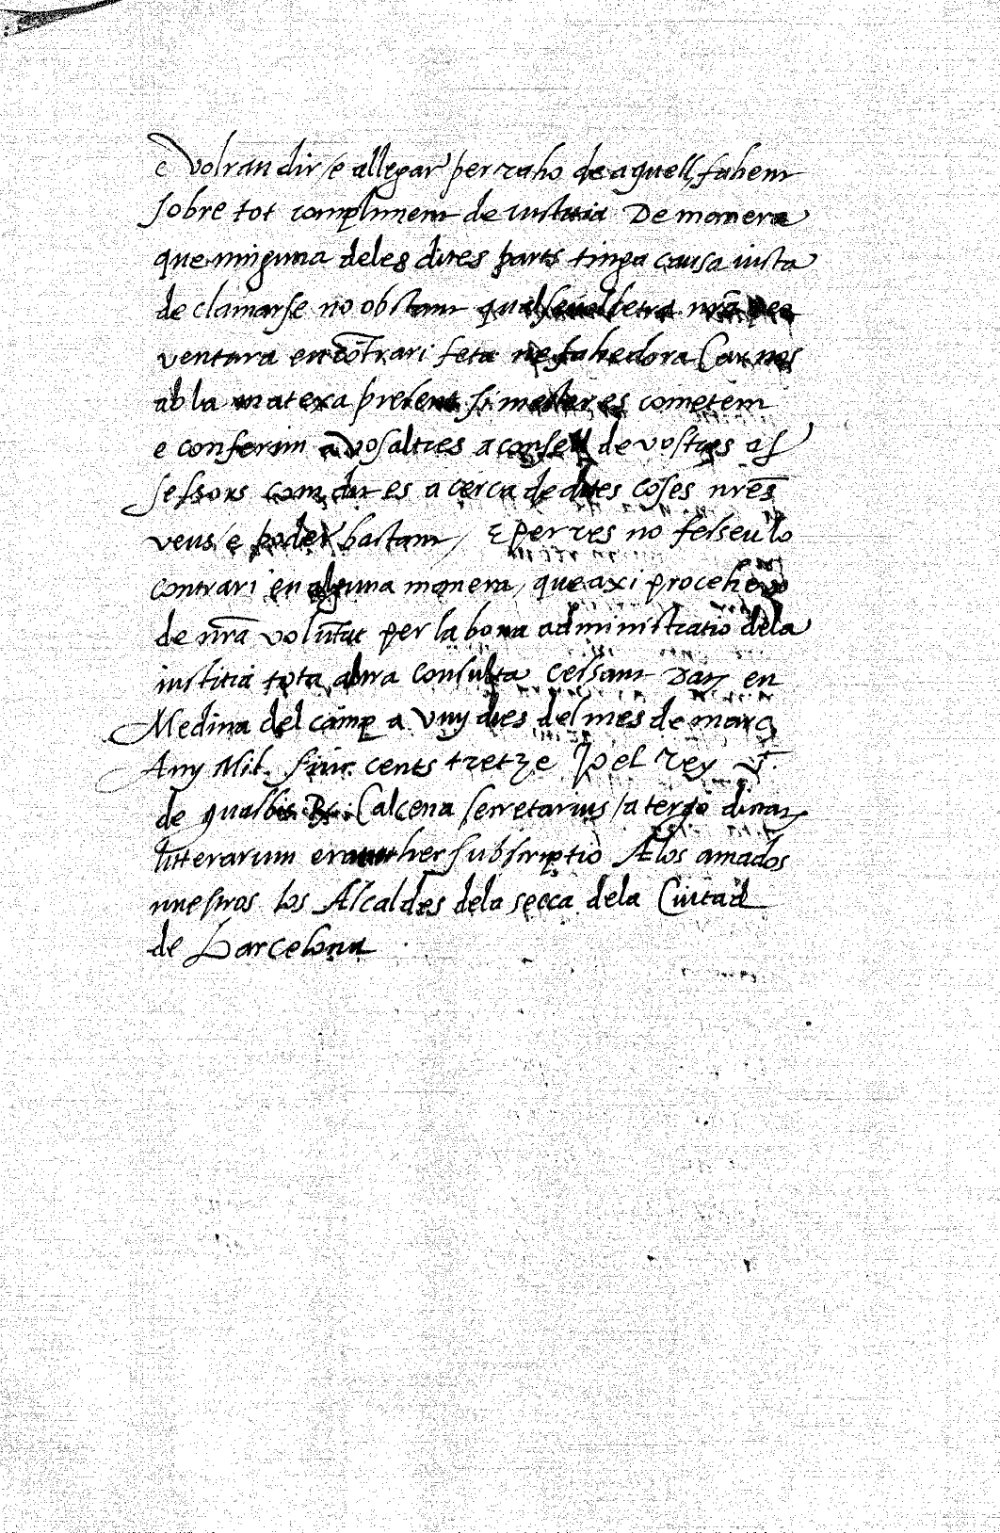 e volran dir e allegar per raho de aquell, fahent
sobre tot compliment de iusticia De manera
que ninguna deles dites parts tinga causa iusta
de clamarse no obstant qualsevol letra nrã per
ventura en cõtrari feta ne fahedora Car nos
ab la matexa present si mester es cometem
e conferim a vosaltres a consell de vostres as
sessors com dit es acerca de dites coses nrẽs
veus e poder bastant / E per res no fesseu lo
contrari en alguna manera, que axi procehex
de nrã volũtat per la bona administratio dela
iusticia tota altra consulta cessant Dat en
Medina del camp a vuy dies del mes de març
Any Mil. Sinc cents tretze Yo el Rey vt.
de qualbis Calcena secretarius / a tergo dictar
litterarum erat subscriptio A los amados
nuestros los Alcaldes dela secca dela Ciutad
de Barcelona